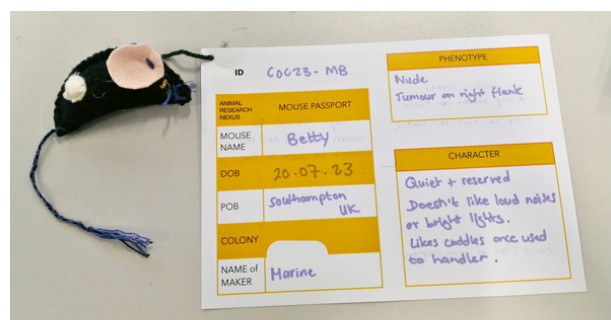 ID COC23-MB
ANIMAL
RESEARCH
NEXUS
MOUSE PASSPORT
MOUSE
NAME
Betty
DOB
20.07.23
POB
Southampton
UK
COLONY
NAME of
MAKER
Marine
PHENOTYPE
Nude
Tumour on right flank
CHARACTER
Quiet + reserved
Doesn't like loud noises
or bright lights.
Likes cuddles once used
to handler.